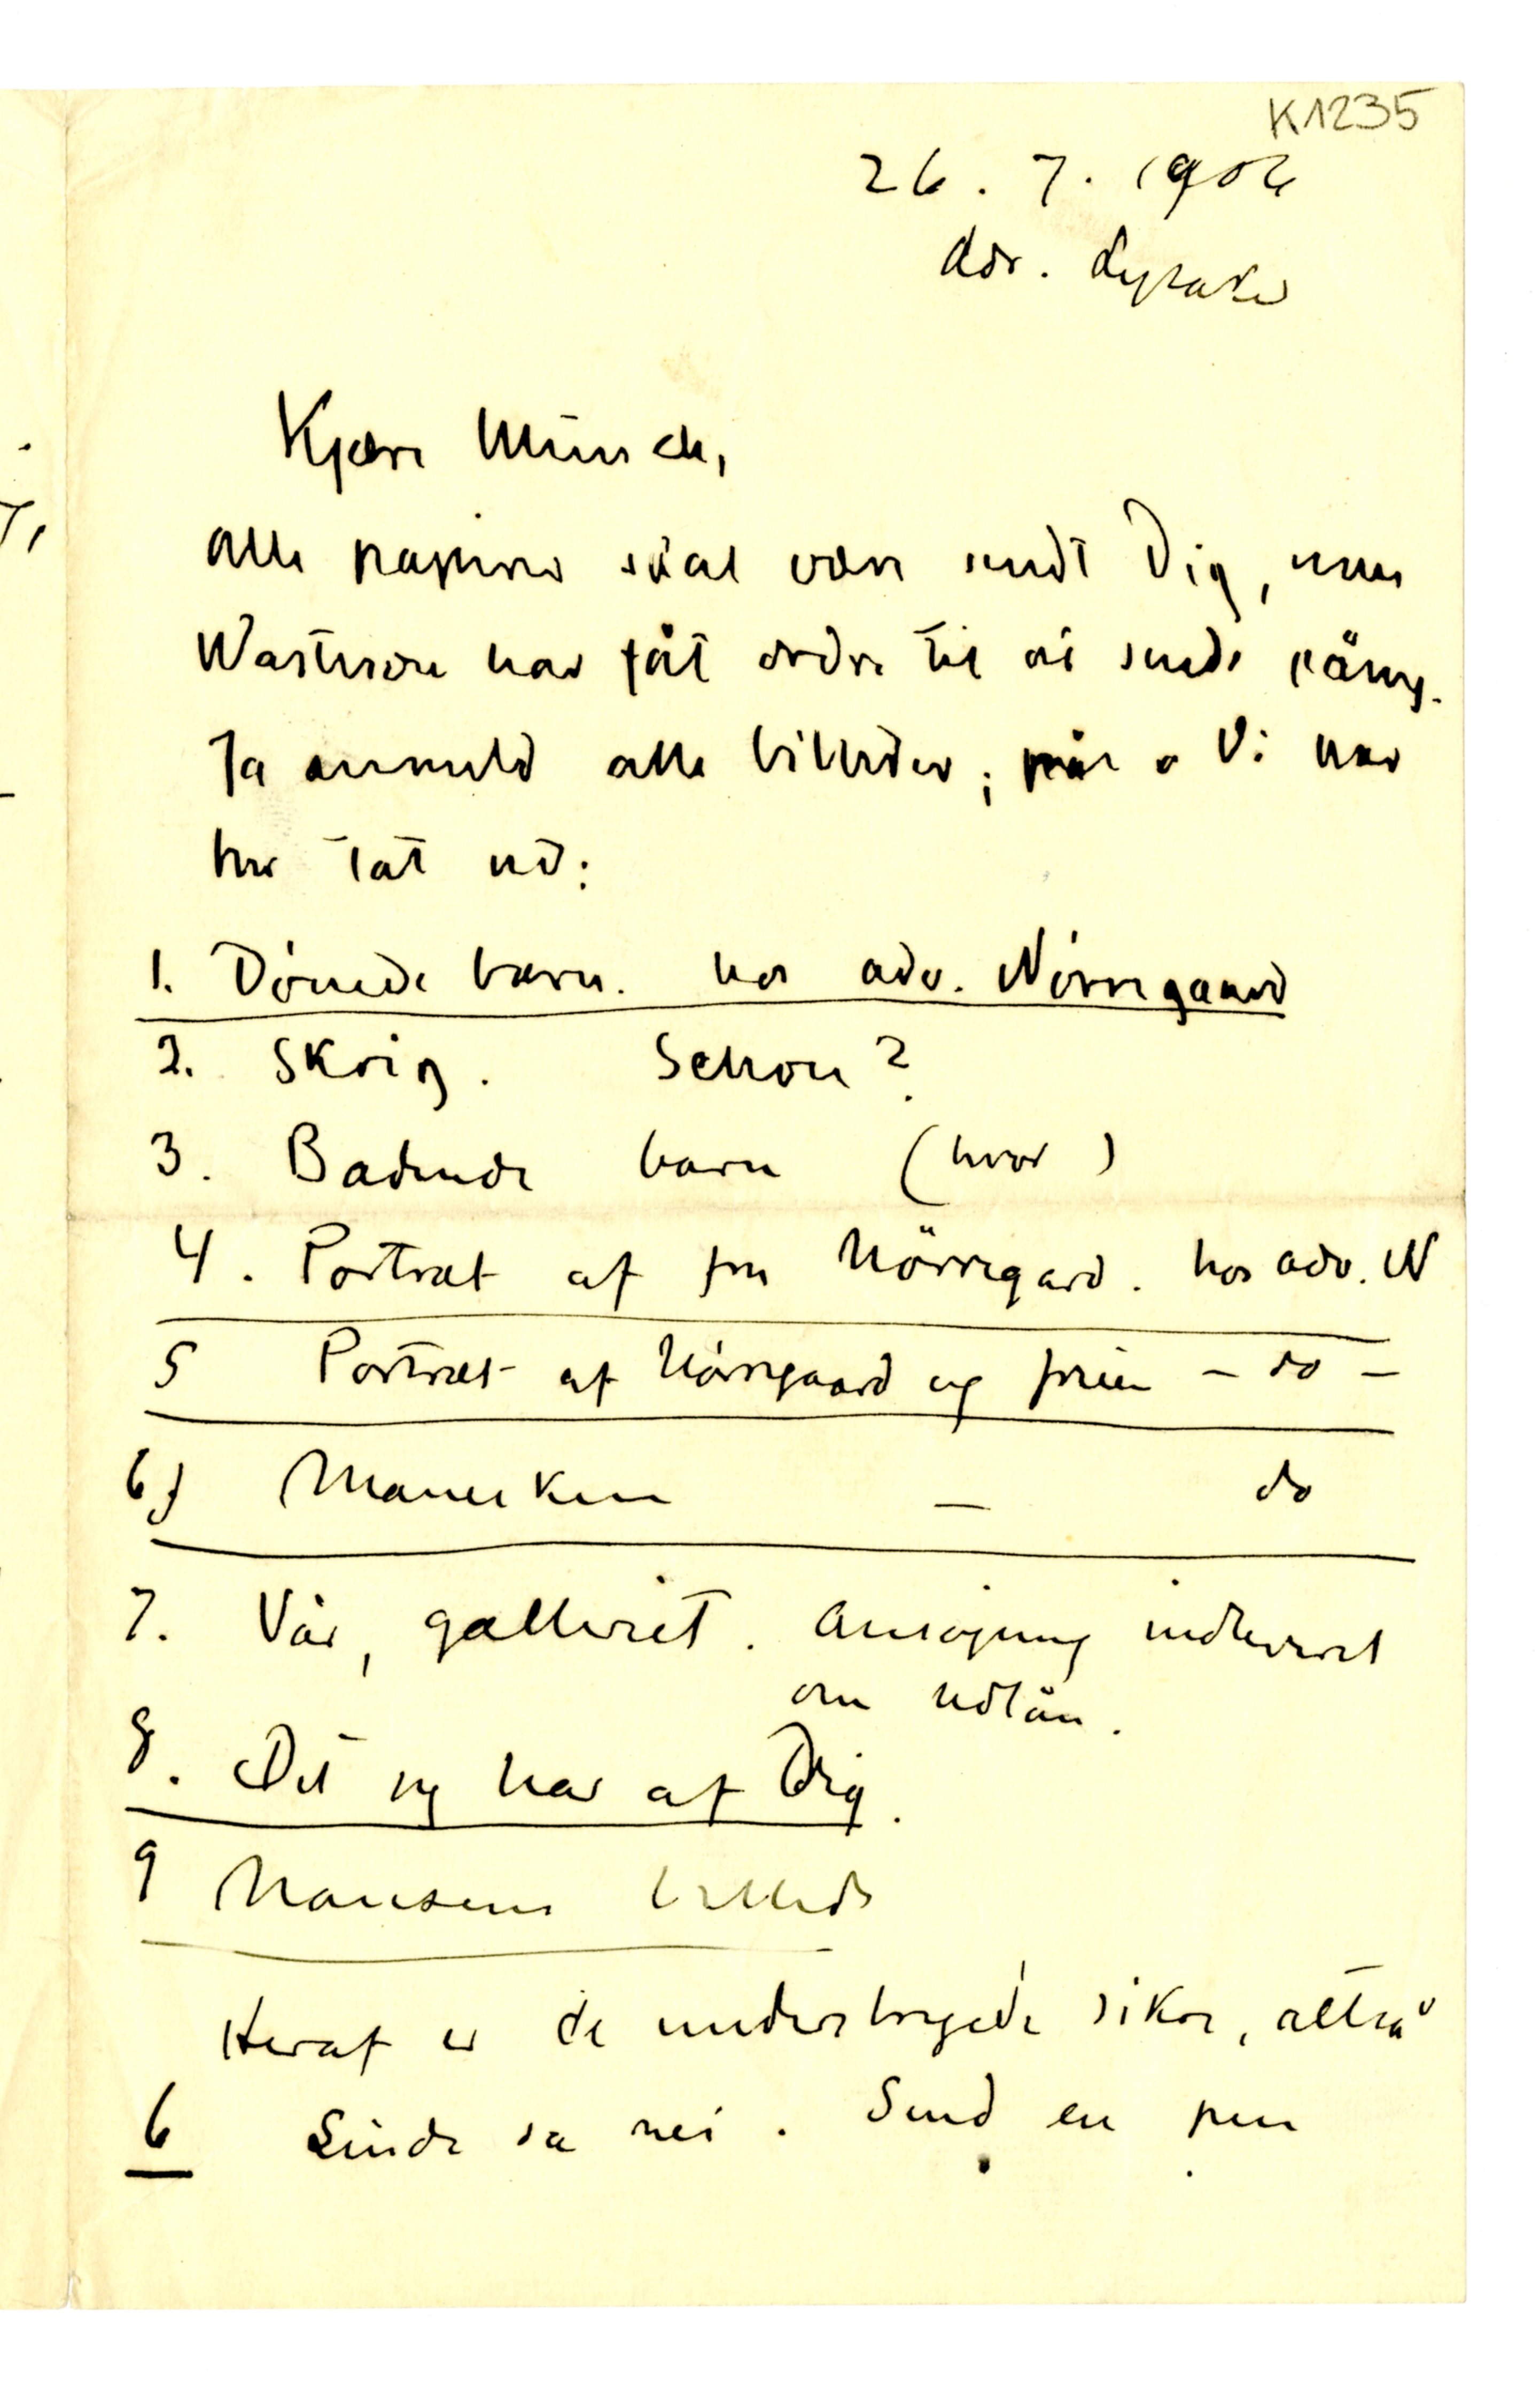 K1235
26. 7. 1904
Adr. Lysaker
Kjære Munch,
alle papirer skal være sendt Dig, men
har fåt ordre til at sende
Ja anmeld alle billeder; Vi har
her tat ud:
1. Döende barn. hos adv. Nörregaard
2. Skrig. Schou?
3. Badende barn (hvor)
4. Portræt af fru Nörregard. hos adv. N
5 Portræt af Nörregaard og fruen – do –
6) Maneskin — do
7. Vår, galleriet. Ansögning indleveret
om udlån.
8. Det jeg har af Dig.
9 Nansens billede
Heraf er de understregede sikre, altså
6 Linde sa nei. Send en pen